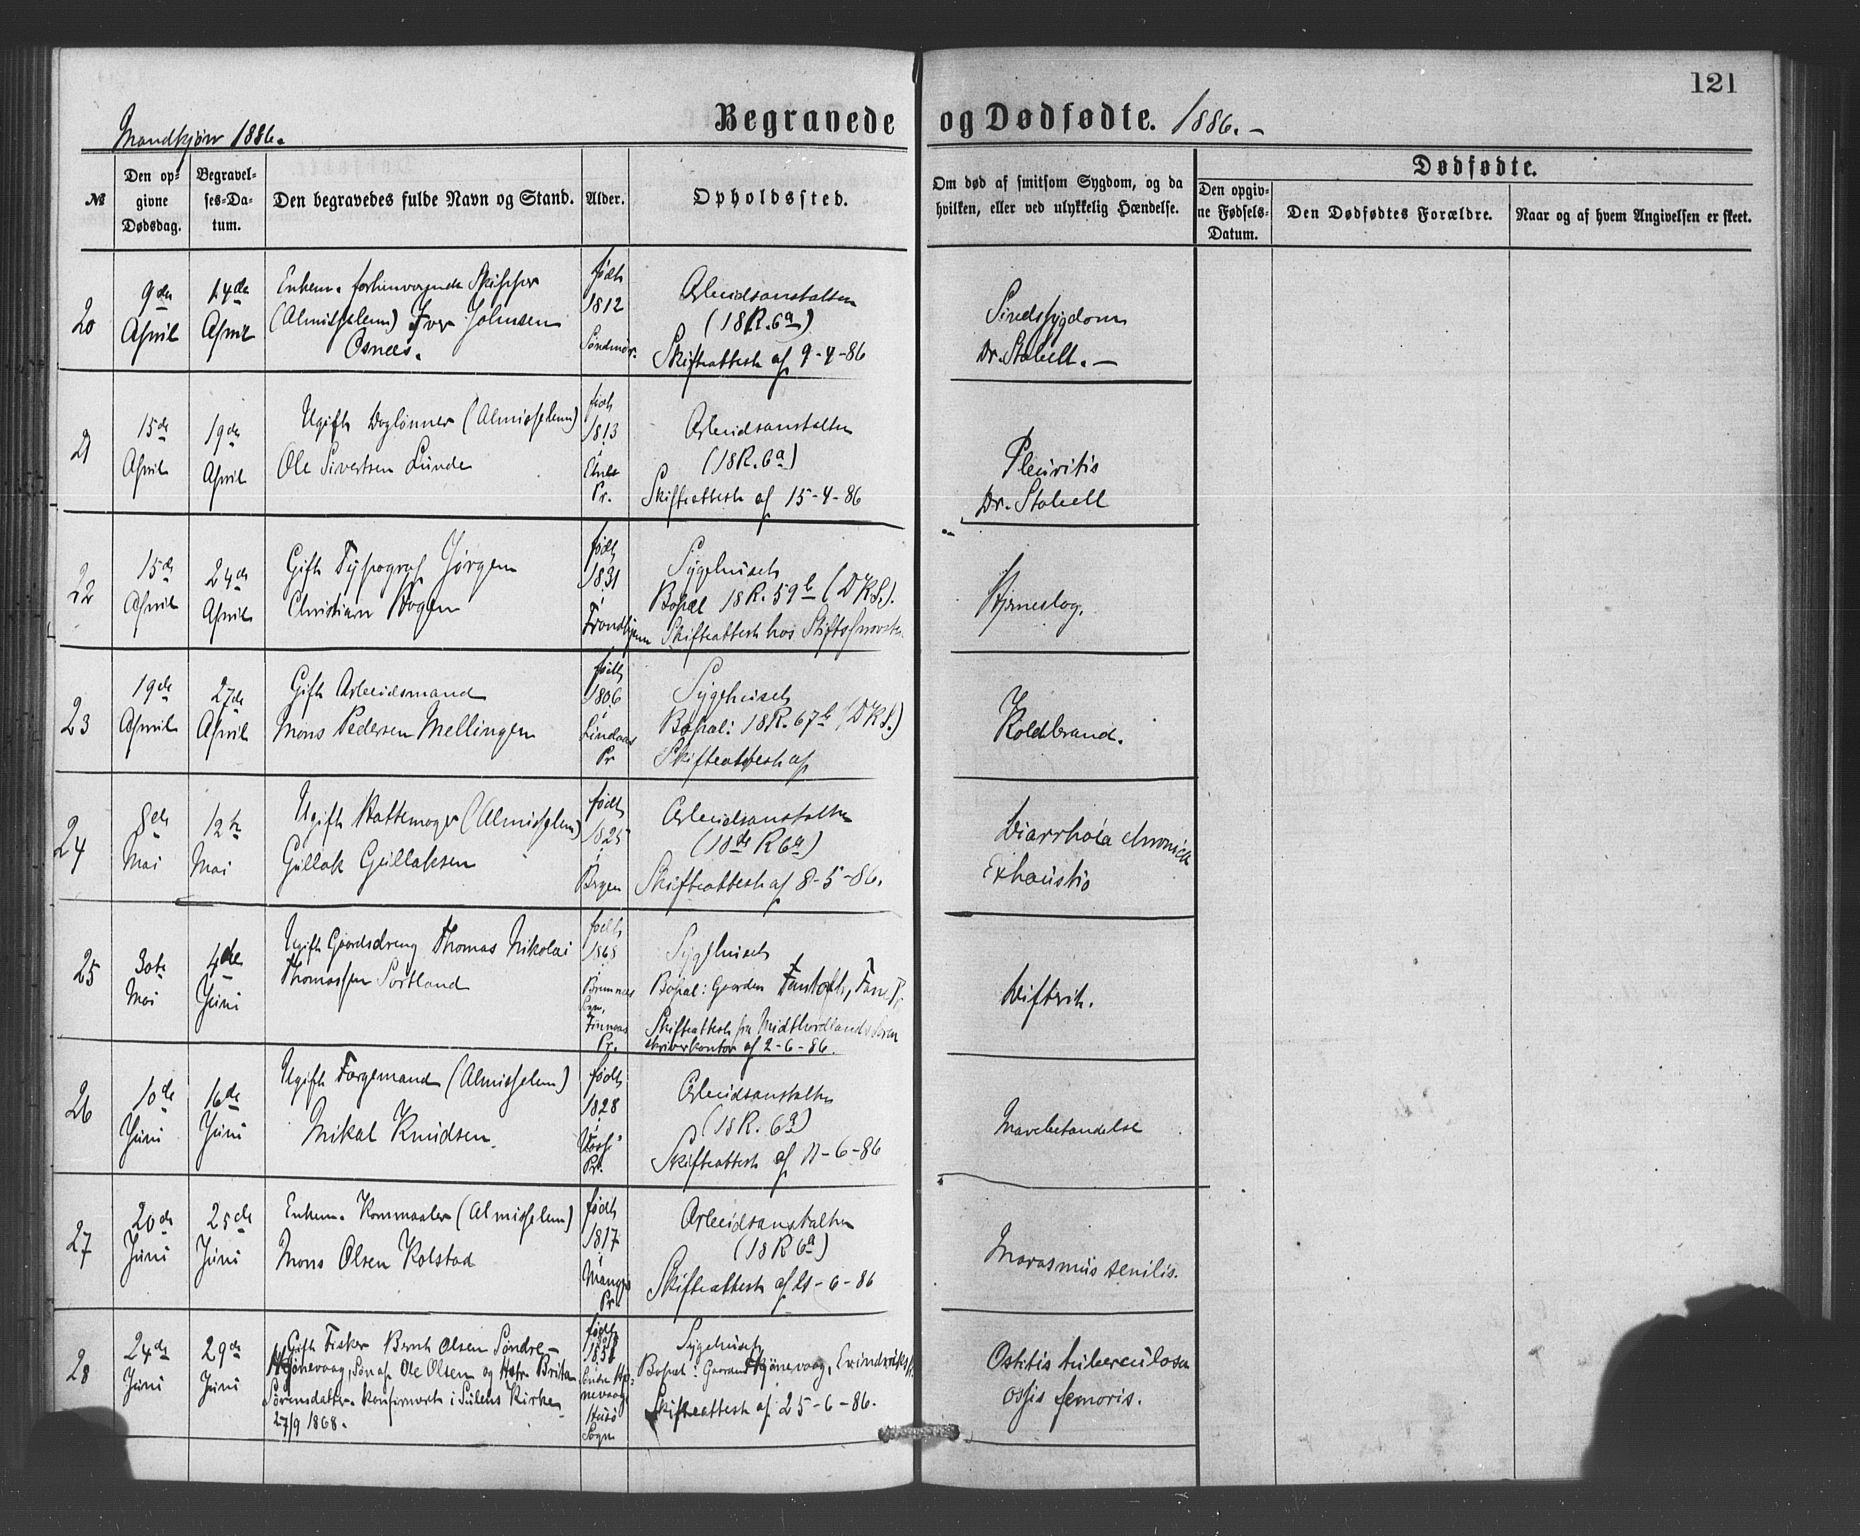 121
Begravede og Dødfødte. 1886.-
Mandkjøn 1886.
№
Den opgivne Dødsdag.
Begravelses-Datum.
Den begravedes fulde Navn og Stand.
Alder.
Opholdssted.
Om død af smitsom Sygdom, og da hvilken, eller ved ulykkelig Hændelse.
Dødfødte.
Den opgivne Fødsels-Datum.
Den Dødfødtes Forældre.
Naar og af hvem Angivelsen er skeet.
20
9de April
14de April
Enkem. forhenværende Skipper
(Almisselem) Iver Johnsen
Osnæs.
født
1812
Søndmør.
Arbeidsanstalten
(18 R. 6a)
Skifteattest af 9-4-86
Sindssygdom
Dr. Stabell.-
21
15de April
19de April
Ugift Daglønner (Almisselem)
Ole Sivertsen Lunde
født
1813
i
Pr.
Arbeidsanstalten
(18R. 6a)
Skifteattest af 15-4-86
Pleuritis
Dr. Stabell
22
15de April
24de April
Gift Typograf Jørgen
Christian Bogen
født
1831
i
Trondhjem
Sygehuset
Bopæl 18 R. 59b (DKS.).
Skifteattest hos Stiftsprovsten
Hjerneslag.
23
19de April
27de April
Gift Arbeidsmand
Mons Pedersen Mellingen
født
1806
i
Lindaas
Pr
Sygehuset
Bopæl: 18R. 67b (DKS.)
Skifteattest af
Koldbrand.
24
8de Mai
12te Mai
Ugift Hattemager (Almisselem)
Gullak Gullaksen
født
1825
i
Bergen
Arbeidsanstalten
(18de R 6a)
Skifteattest af 8-5-86.
Diarrhoia chronica
Exhaustio
25
30te Mai
4de Juni
Ugift Gaardsdreng Thomas Nikolai
Thomassen Sortland
født
1865
Bremnes
Sogn,
Finnaas
Pr.
Sygehuset
Bopæl: Gaarden Fantoft, Fane Pr.
Skifteattest fra Midthordlands Soren
skriverkontor af 2-6-86.
Difterit.
26
10de Juni
16de Juni
Ugift Fargemand (Almisselem)
Mikal Knudsen.
født
1828
i
Voss'
Pr.
Arbeidsanstalten
(18R. 6a)
Skifteattest af 11-6-86
Mavebetændelse
27
20de Juni
25de Juni
Enkem. Kornmaaler (Almisselem)
Mons Olsen Kolstad
født
1817
i
Manger
Pr.
Arbeidsanstalten
(18 R 6a)
Skifteattest af 21-6-86
Marasmus senilis.
28
24de Juni
29de Juni
Gift Fisker Bernt Olsen Søndre-
Hjønevaag, Søn af Ole Olsen og Hstr. Britha
Sørensdatter. Konfirmert i Sulens Kirke
27/9 1868.
født
Hjø-
nevaag
Husø
Sogn
Sygehuset
Bopæl: Gaarden Hjønevaag, Evindviks Pr.
Skifteattest af 25-6-86.
Ostitis tuberculosa
ossis femoris.